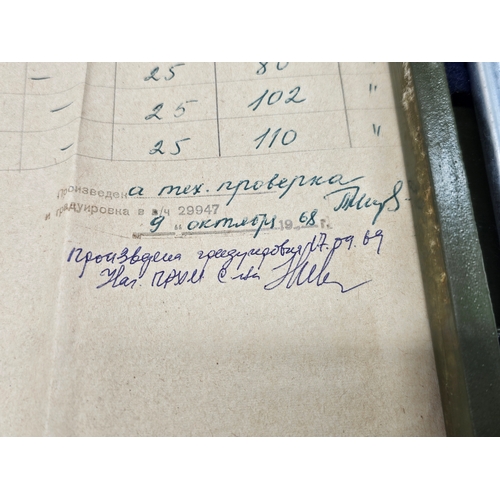 — 25 80
— 25 102 "
— 25 110 "
Произведена тех. проверка
и градуировка в в/ч 29947
9 " октября 19 68 г.
Произведена градуировка 17.09.69
Нач. ПРХМ